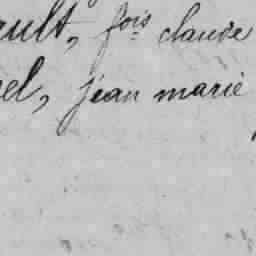 ult, fois claude
el, jean marie